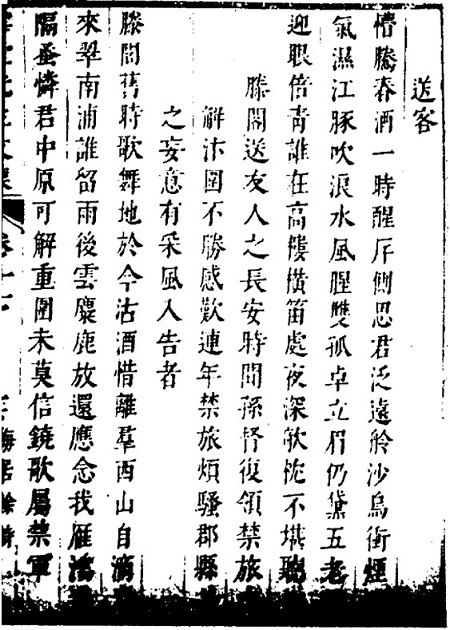 送客
懵騰春酒一時醒斥側思君泛遠舲沙鳥衝煙
氣濕江豚吹浪水風腥雙孤卓立眉仍黛五老
迎眼倍青誰在高樓橫笛處夜深欹枕不堪聽
滕閣送友人之長安時聞孫督復領禁旅
解汴圍不勝感歎連年禁旅煩騷郡縣
之妄意有采風入告者
滕閣舊時歌舞地於今沽酒惜離羣西山自滴
來翠南浦誰留雨後雲麋鹿放還應念我雁鴻
隔蚤憐君中原可解重圍未莫信鐃歌屬禁軍